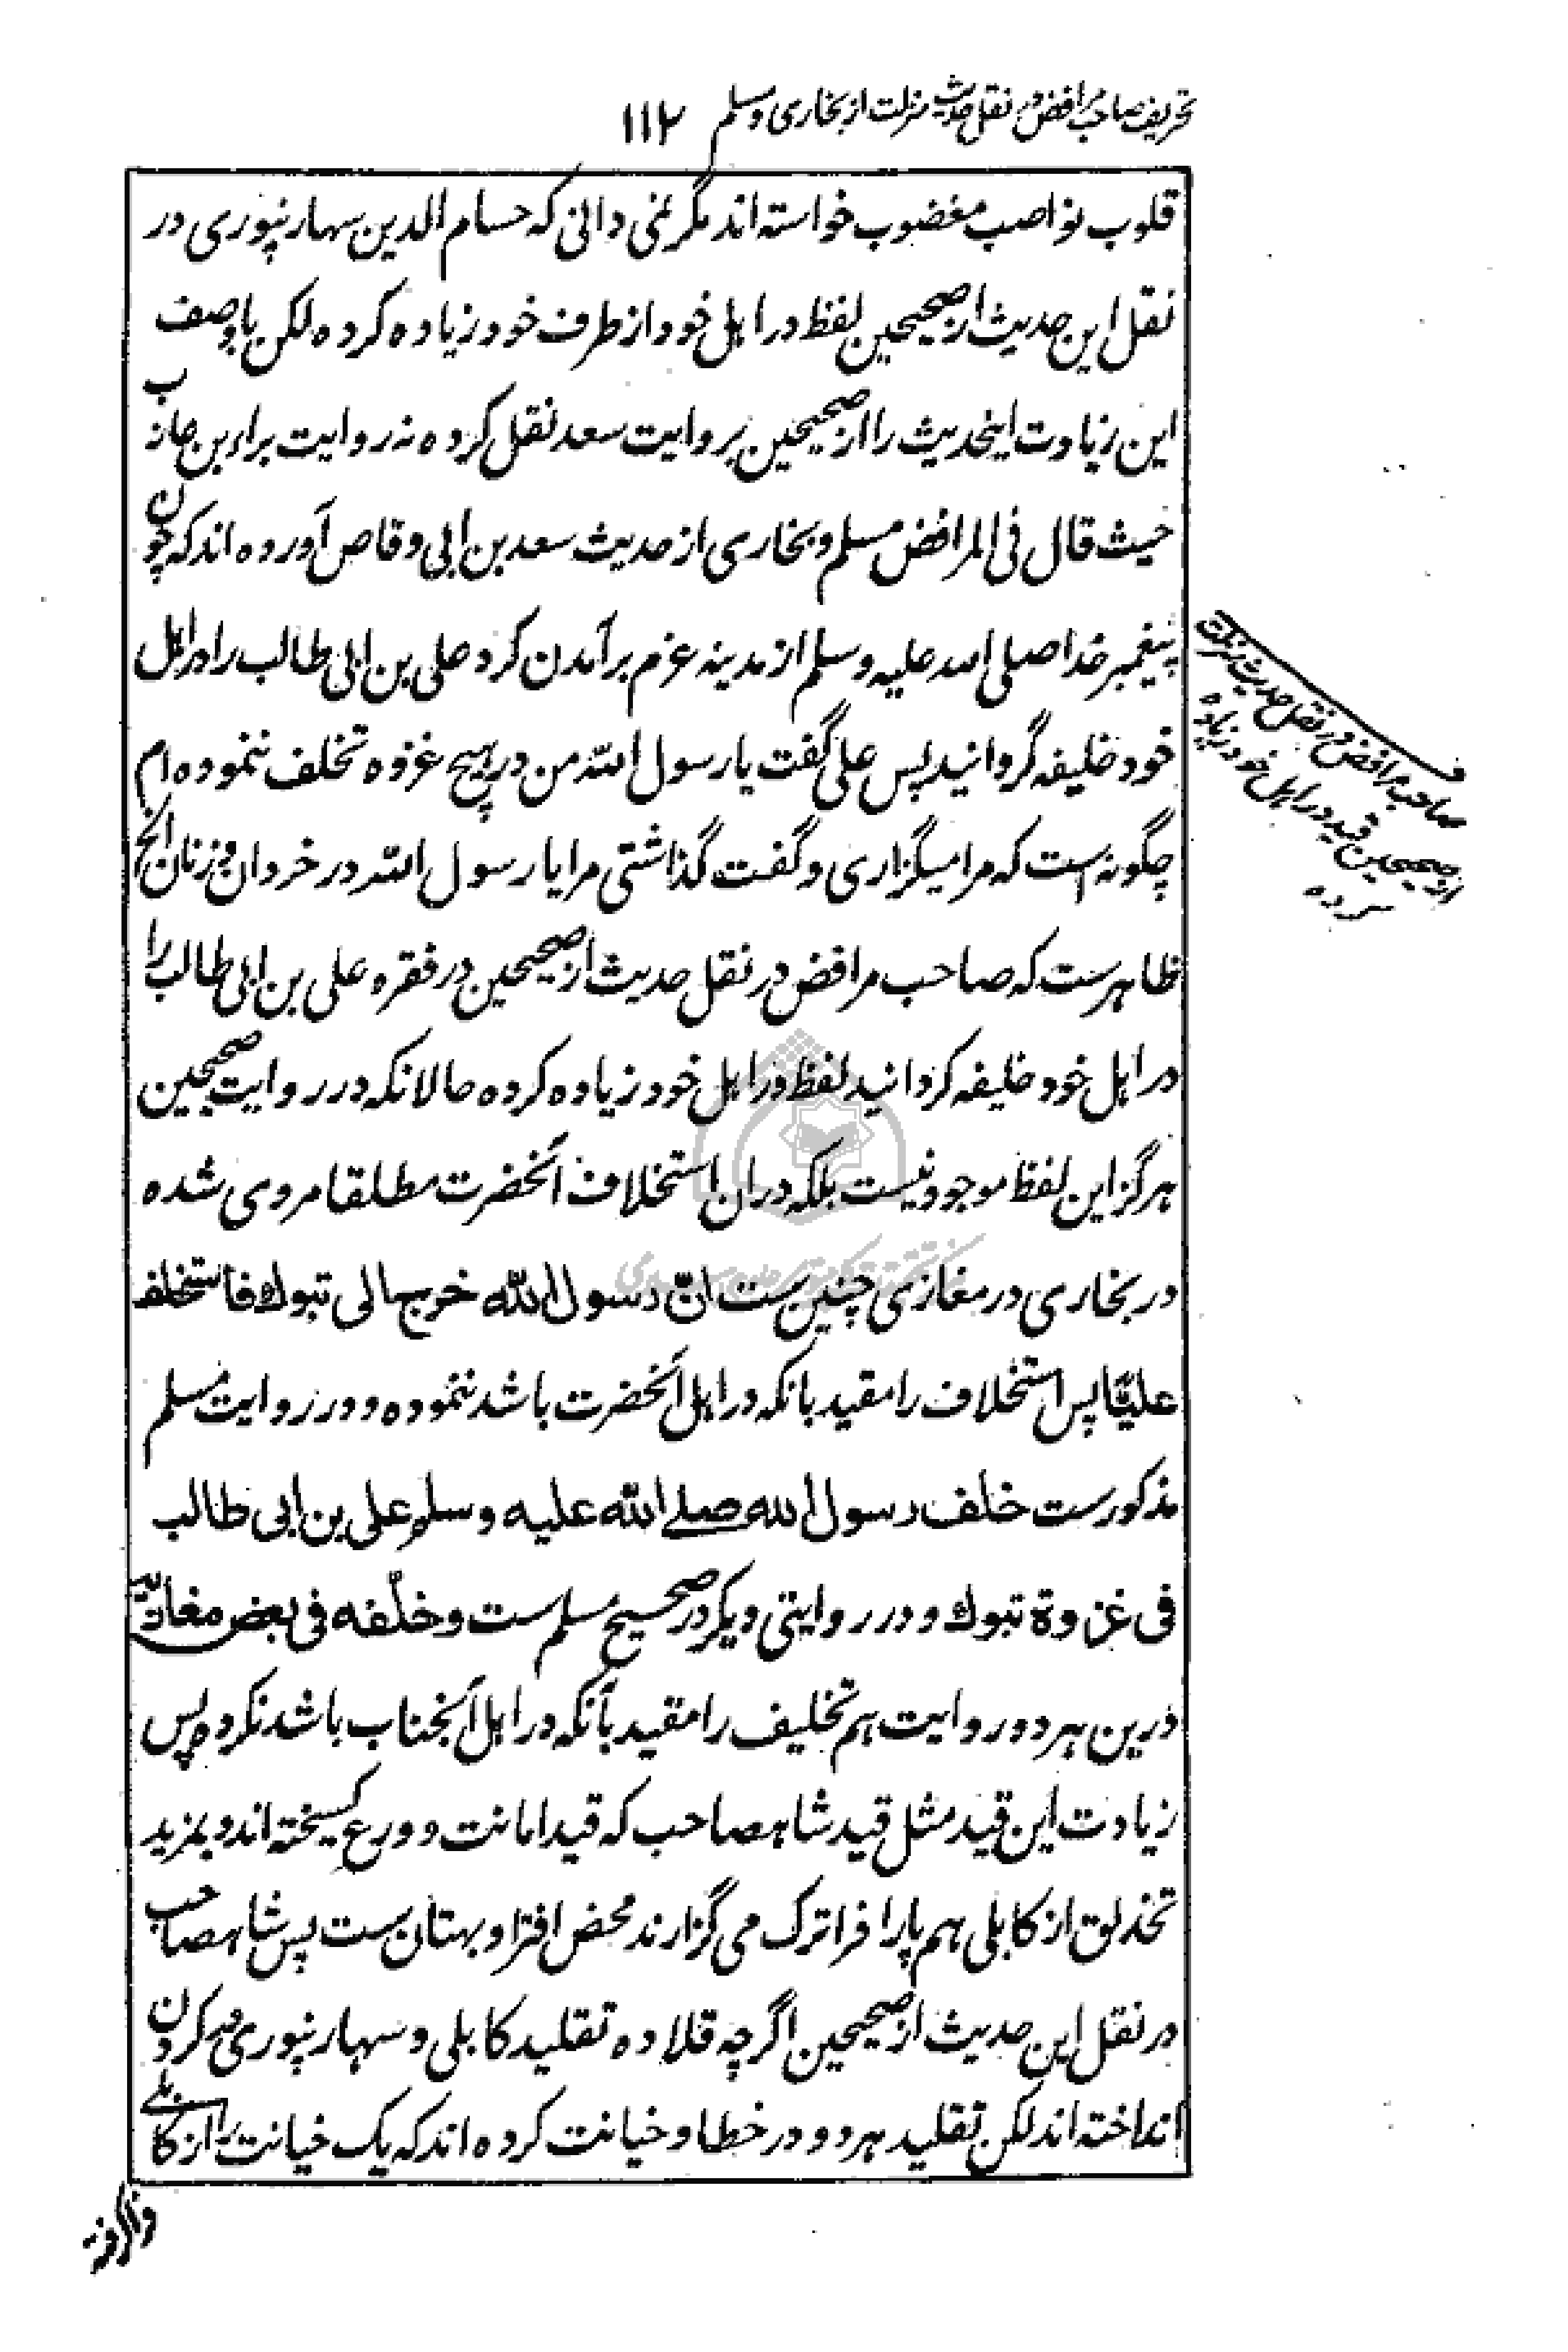 تحریف صاحب مرافض در نقل حدیث منزلت از بخاری و مسلم ۱۱۲
قلوب نواصب مغضوب خواسته اند مگر نمی دانی که حسام الدین سهارنپوری در
نقل این حدیث از صحیحین لفظ در اهل خود از طرف خود زیاده کرده لکن باوصف
این زیادت اینحدیث را از صحیحین بروایت سعد نقل کرده نه روایت براء بن عازب
حیث قال فی المرافض مسلم و بخاری از حدیث سعد بن ابی وقاص آورده اند که چون
پیغمبر خدا صلی الله علیه وسلم از مدینه عزم برآمدن کرد علی بن ابی طالب را در اهل
خود خلیفه گردانید پس علی گفت یا رسول الله من در هیچ غزوه تخلف ننموده ام
چگونه است که مرا میگزاری و گفت گذاشتی مرا یا رسول الله در خردان و زنان الخ
ظاهرست که صاحب مرافض در نقل حدیث از صحیحین در فقره علی بن ابی طالب را
در اهل خود خلیفه کردانید لفظ در اهل خود زیاده کرده حالانکه در روایت صحیحین
هرگز این لفظ موجود نیست بلکه دران استخلاف آنحضرت مطلقا مروی شده
در بخاری در مغازی چنین ست انّ رسول الله خرج الی تبوك فاستخلف
علیّا پس استخلاف را مقید بانکه در اهل آنحضرت باشد ننموده و در روایت مسلم
مذکورست خلف رسول الله صلے الله علیه وسلم علی بن ابی طالب
فی غزوة تبوك و در روایتی دیگر در صحیح مسلم ست و خلّفه فی بعض مغازیه
درین هر دو روایت هم تخلیف را مقید بآنکه در اهل آنجناب باشد نکرده پس
زیادت این قید مثل قید شاهصاحب که قید امانت و ورع گسیخته اند و بمزید
تحذلق از کابلی هم پا را فراترک می گزارند محض افترا و بهتان ست پس شاهصاحب
در نقل این حدیث از صحیحین اگرچه قلاده تقلید کابلی و سهارنپوری در گردن
انداخته اند لکن تقلید هر دو در خطا و خیانت کرده اند که یک خیانت را از کابلے
ف
صاحب مرافض در نقل حدیث منزلت
از صحیحین قید در اهل خود زیاده
کرده